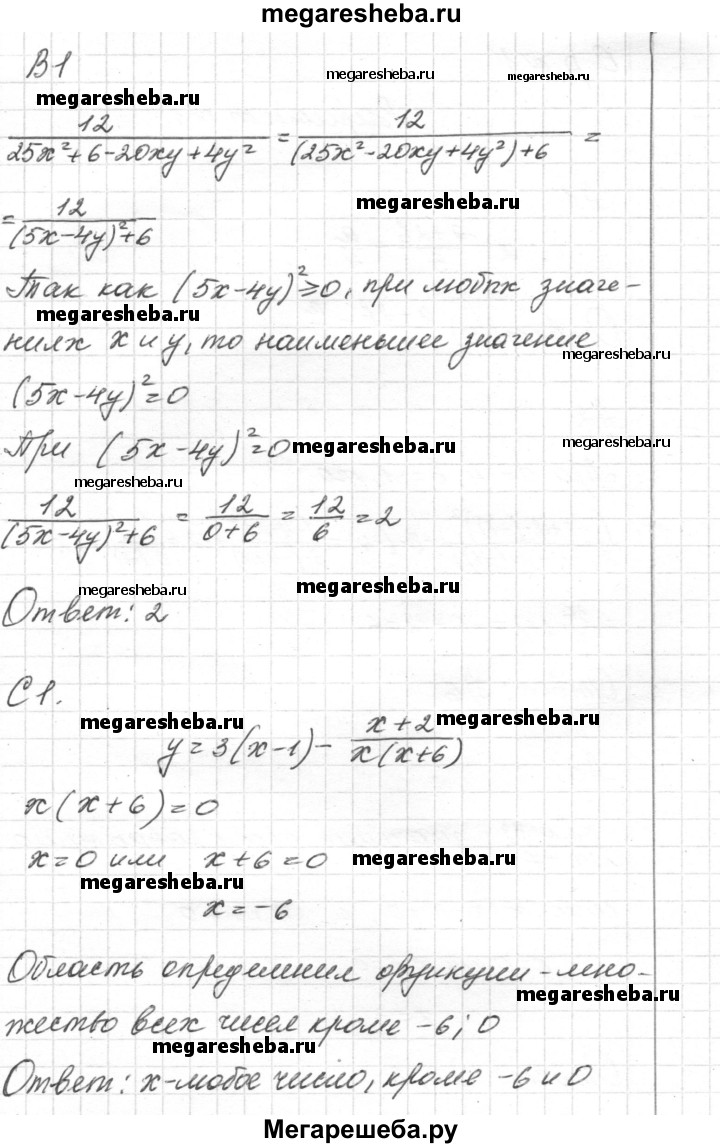 megaresheba.ru
В1
megaresheba.ru megaresheba.ru
megaresheba.ru
12/(25x²+6-20xy+4y²) = 12/((25x²-20xy+4y²)+6) =
megaresheba.ru
= 12/((5x-4y)²+6)
Так как (5x-4y)²≥0, при любых значе-
megaresheba.ru
ниях x и y, то наименьшее значение
megaresheba.ru
(5x-4y)²=0
При (5x-4y)²=0
megaresheba.ru megaresheba.ru
megaresheba.ru
12/((5x-4y)²+6) = 12/(0+6) = 12/6 = 2
megaresheba.ru megaresheba.ru
Ответ: 2
С1.
megaresheba.ru megaresheba.ru
y=3(x-1)- (x+2)/(x(x+6))
x(x+6)=0
x=0 или x+6=0
megaresheba.ru
megaresheba.ru
x=-6
Область определения функции-мно-
megaresheba.ru
жество всех чисел кроме -6; 0
megaresheba.ru
Ответ: x-любое число, кроме -6 и 0
Мегарешеба.ру